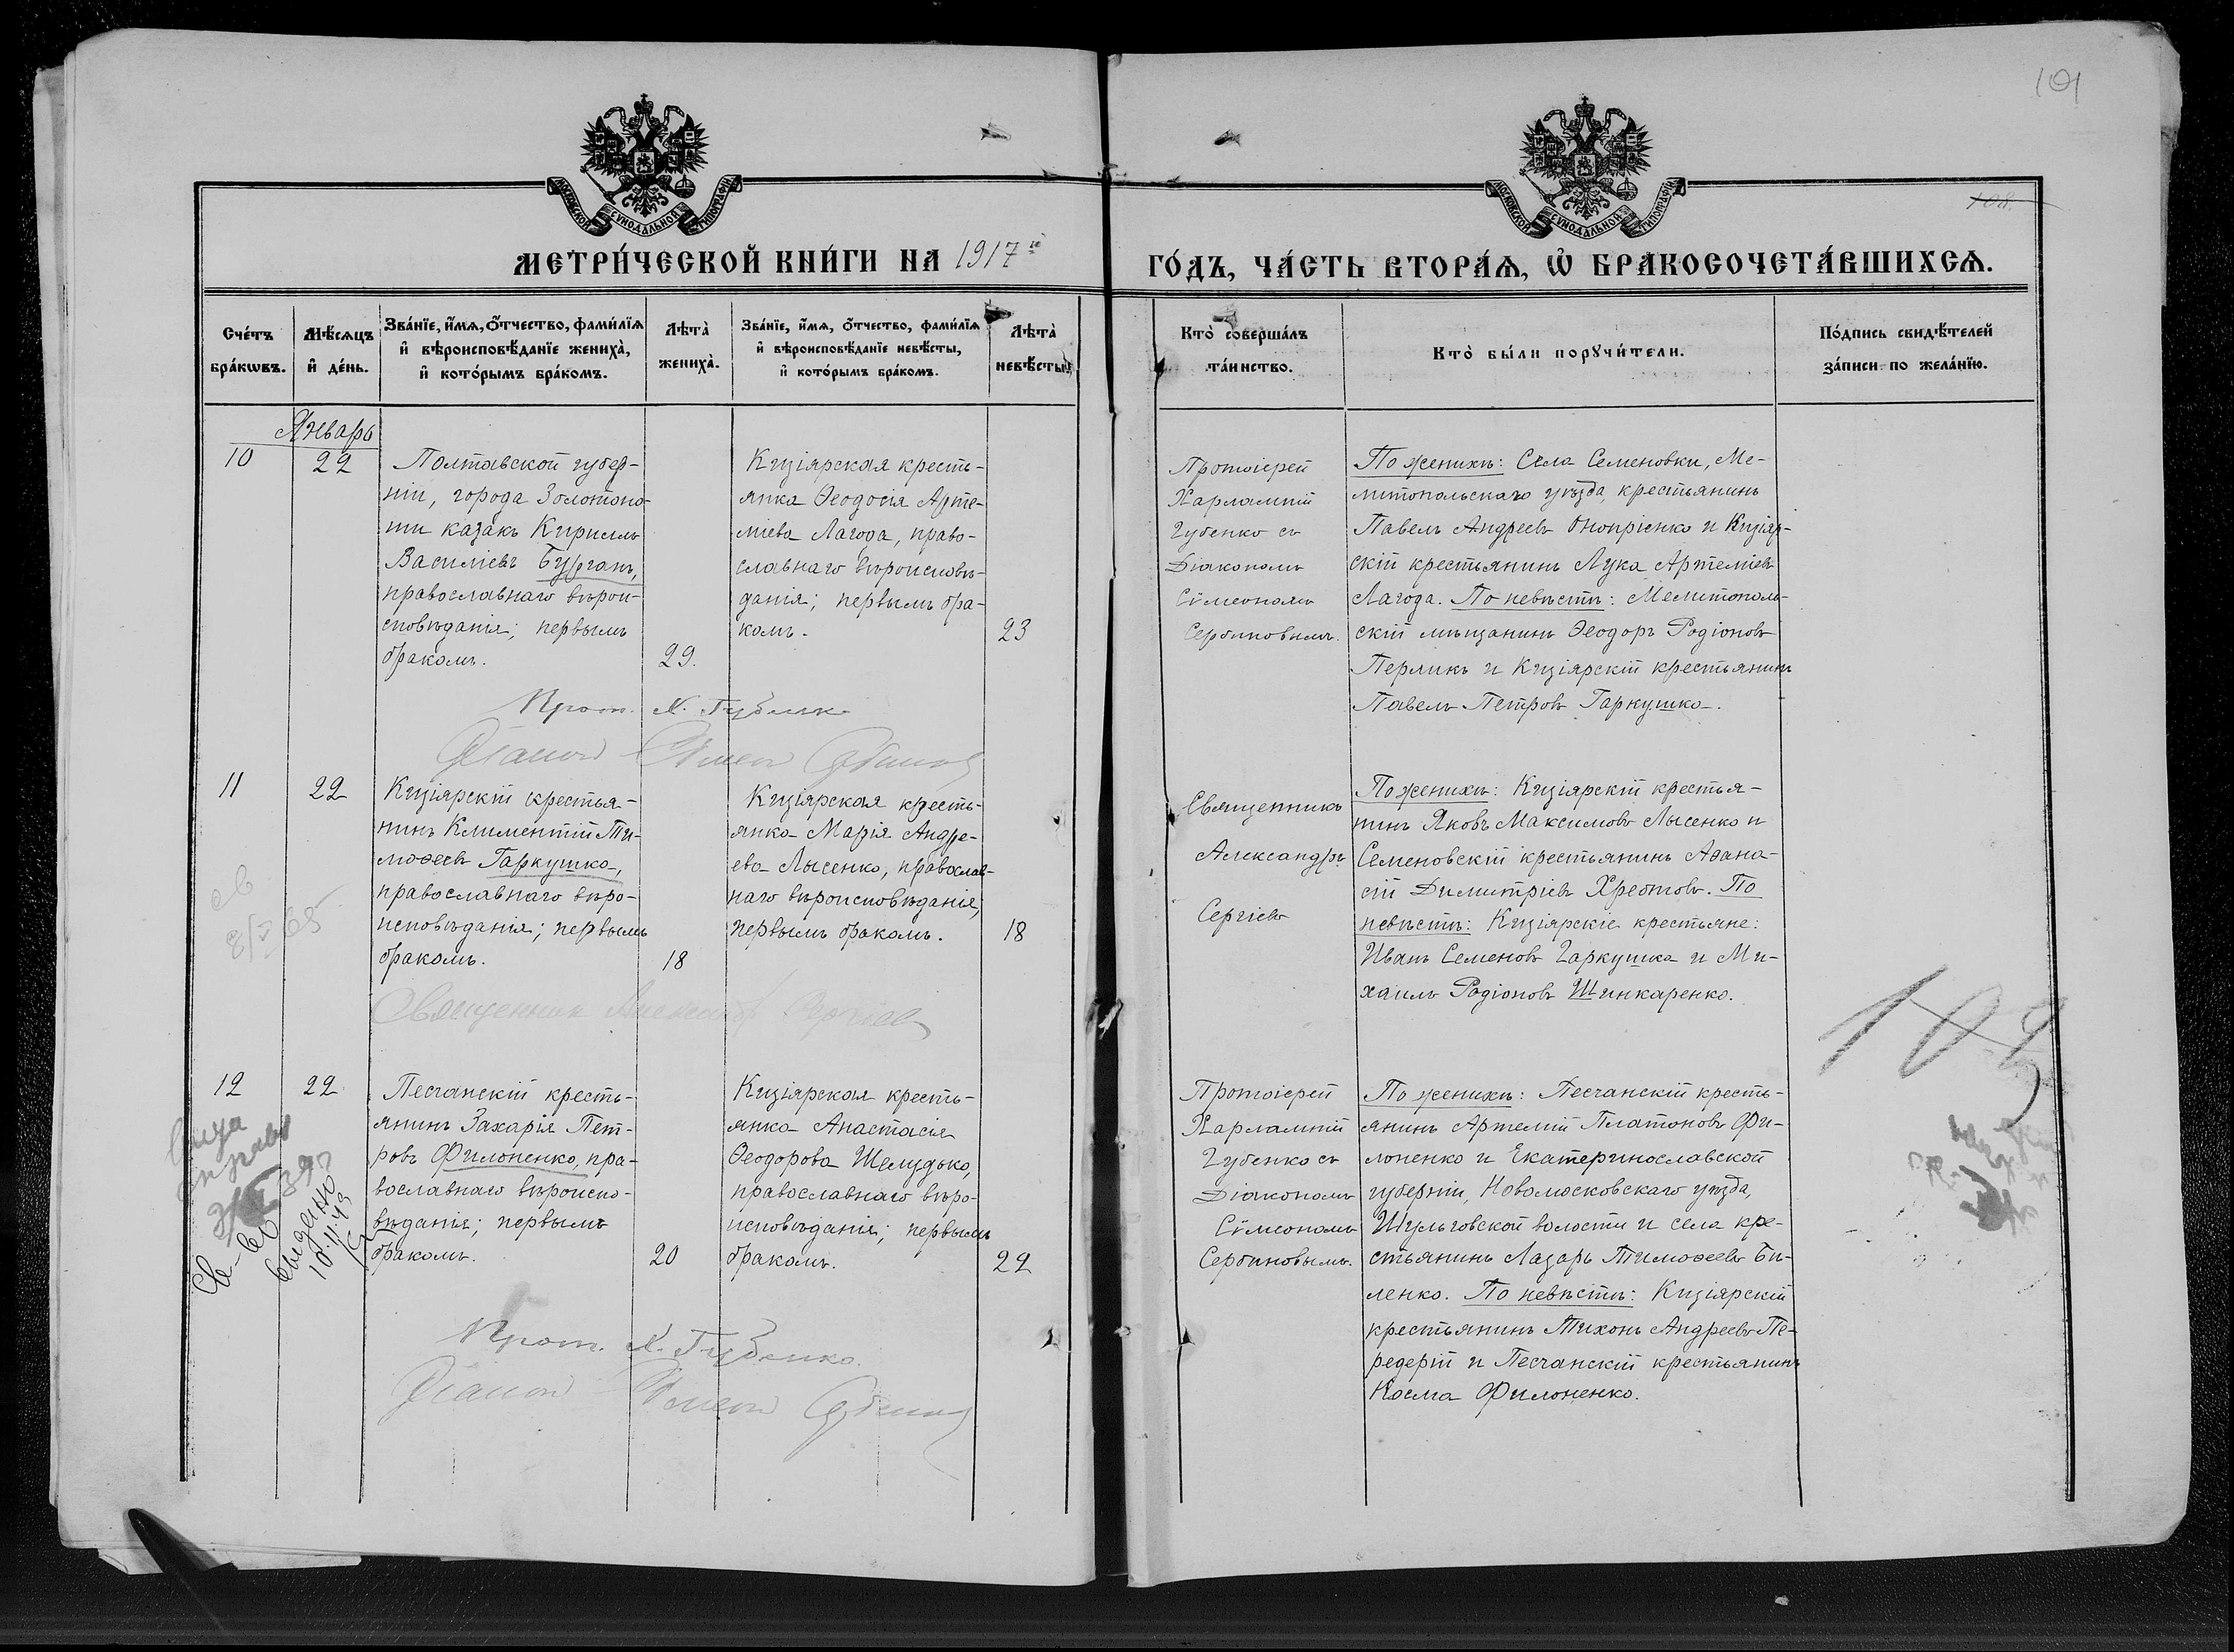 101
108.
МОСКОВСКОЙ СѴНОДАЛЬНОЙ ТИПОГРАФІИ
МОСКОВСКОЙ СѴНОДАЛЬНОЙ ТИПОГРАФІИ
МЕТРИ́ЧЕСКОЙ КНИ́ГИ НА 1917й
ГО́ДЪ, ЧА́СТЬ ВТОРА́Ѧ, Ѡ҆ БРАКОСОЧЕТА́ВШИХСѦ.
Сче́тъ
бра́кѡвъ.
Мѣ́сѧцъ
и҆ де́нь.
Зва́нїе, и҆́мѧ, о҆́тчество, фами́лїѧ
и҆ вѣроисповѣ́данїе жениха̀,
и҆ кото́рымъ бра́комъ.
Лѣта̀
жениха̀.
Зва́нїе, и҆́мѧ, о҆́тчество, фами́лїѧ
и҆ вѣроисповѣ́данїе невѣ́сты,
и҆ кото́рымъ бра́комъ.
Лѣта̀
невѣ́сты.
Кто̀ соверша́лъ
та́инство.
Кто̀ бы́ли порꙋчи́тели.
По́дпись свидѣ́телей
за́писи по жела́нїю.
Январь
10
22
Полтавской губер-
ніи, города Золотоно-
ши казакъ Кириллъ
Василіевъ Бурганъ,
православнаго вѣрои-
сповѣданія; первымъ
бракомъ.
29.
Кизіярская кресть-
янка Ѳеодосія Арте-
міева Лагода, право-
славнаго вѣроисповѣ-
данія; первымъ бра-
комъ.
23
Протоіерей
Харлампій
Губенко съ
Діакономъ
Сѵмеономъ
Сербиновымъ.
По женихѣ: Села Семеновки, Ме-
литопольскаго уѣзда, крестьянинъ
Павелъ Андреевъ Онопріенко и Кизіяр-
скій крестьянинъ Лука Артеміевъ
Лагода. По невѣстѣ: Мелитополь-
скій мѣщанинъ Ѳеодоръ Родіоновъ
Перликъ и Кизіярскій крестьянинъ
Павелъ Петровъ Гаркушко.
Прот. Х. Губенко
Діаконъ Сѵмеонъ Сербиновъ
11
22
Кизіярскій крестья-
нинъ Климентій Ти-
моѳеевъ Гаркушко,
православнаго вѣро-
исповѣданія; первымъ
бракомъ.
18
Кизіярская кресть-
янка Марія Андре-
ева Лысенко, православ-
наго вѣроисповѣданія,
первымъ бракомъ.
18
Священникъ
Александръ
Сергіевъ
По женихѣ: Кизіярскій крестья-
нинъ Яковъ Максимовъ Лысенко и
Семеновскій крестьянинъ Аѳана-
сій Димитріевъ Хрестовъ. По
невѣстѣ: Кизіярскіе крестьяне:
Иванъ Семеновъ Гаркушка и Ми-
хаилъ Родіоновъ Шинкаренко.
Священник Александр Сергіевъ
12
22
Песчанскій кресть-
янинъ Захарія Пет-
ровъ Филоненко, пра-
вославнаго вѣроиспо-
вѣданія; первымъ
бракомъ.
20
Кизіярская кресть-
янка Анастасія
Ѳеодорова Шелудько,
православнаго вѣро-
исповѣданія; первымъ
бракомъ.
22
Протоіерей
Харлампій
Губенко съ
Діакономъ
Сѵмеономъ
Сербиновымъ.
По женихѣ: Песчанскій кресть-
янинъ Артемій Платоновъ Фи-
лоненко и Екатеринославской
губерніи, Новомосковскаго уѣзда,
Шульговской волости и села кре-
стьянинъ Лазарь Тимоѳеевъ Би-
ленко. По невѣстѣ: Кизіярскій
крестьянинъ Тихонъ Андреевъ Пе-
редерій и Песчанскій крестьянинъ
Косма Филоненко.
Прот. Х. Губенко.
Діаконъ Сѵмеонъ Сербиновъ